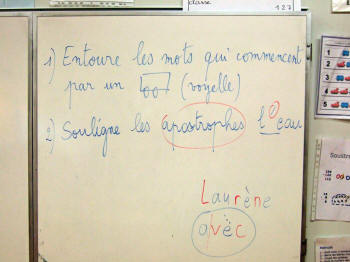 classe
127
1) Entoure les mots qui commencent
par un (voyelle)
2) Souligne les apostrophes l'eau
Laurène
avec